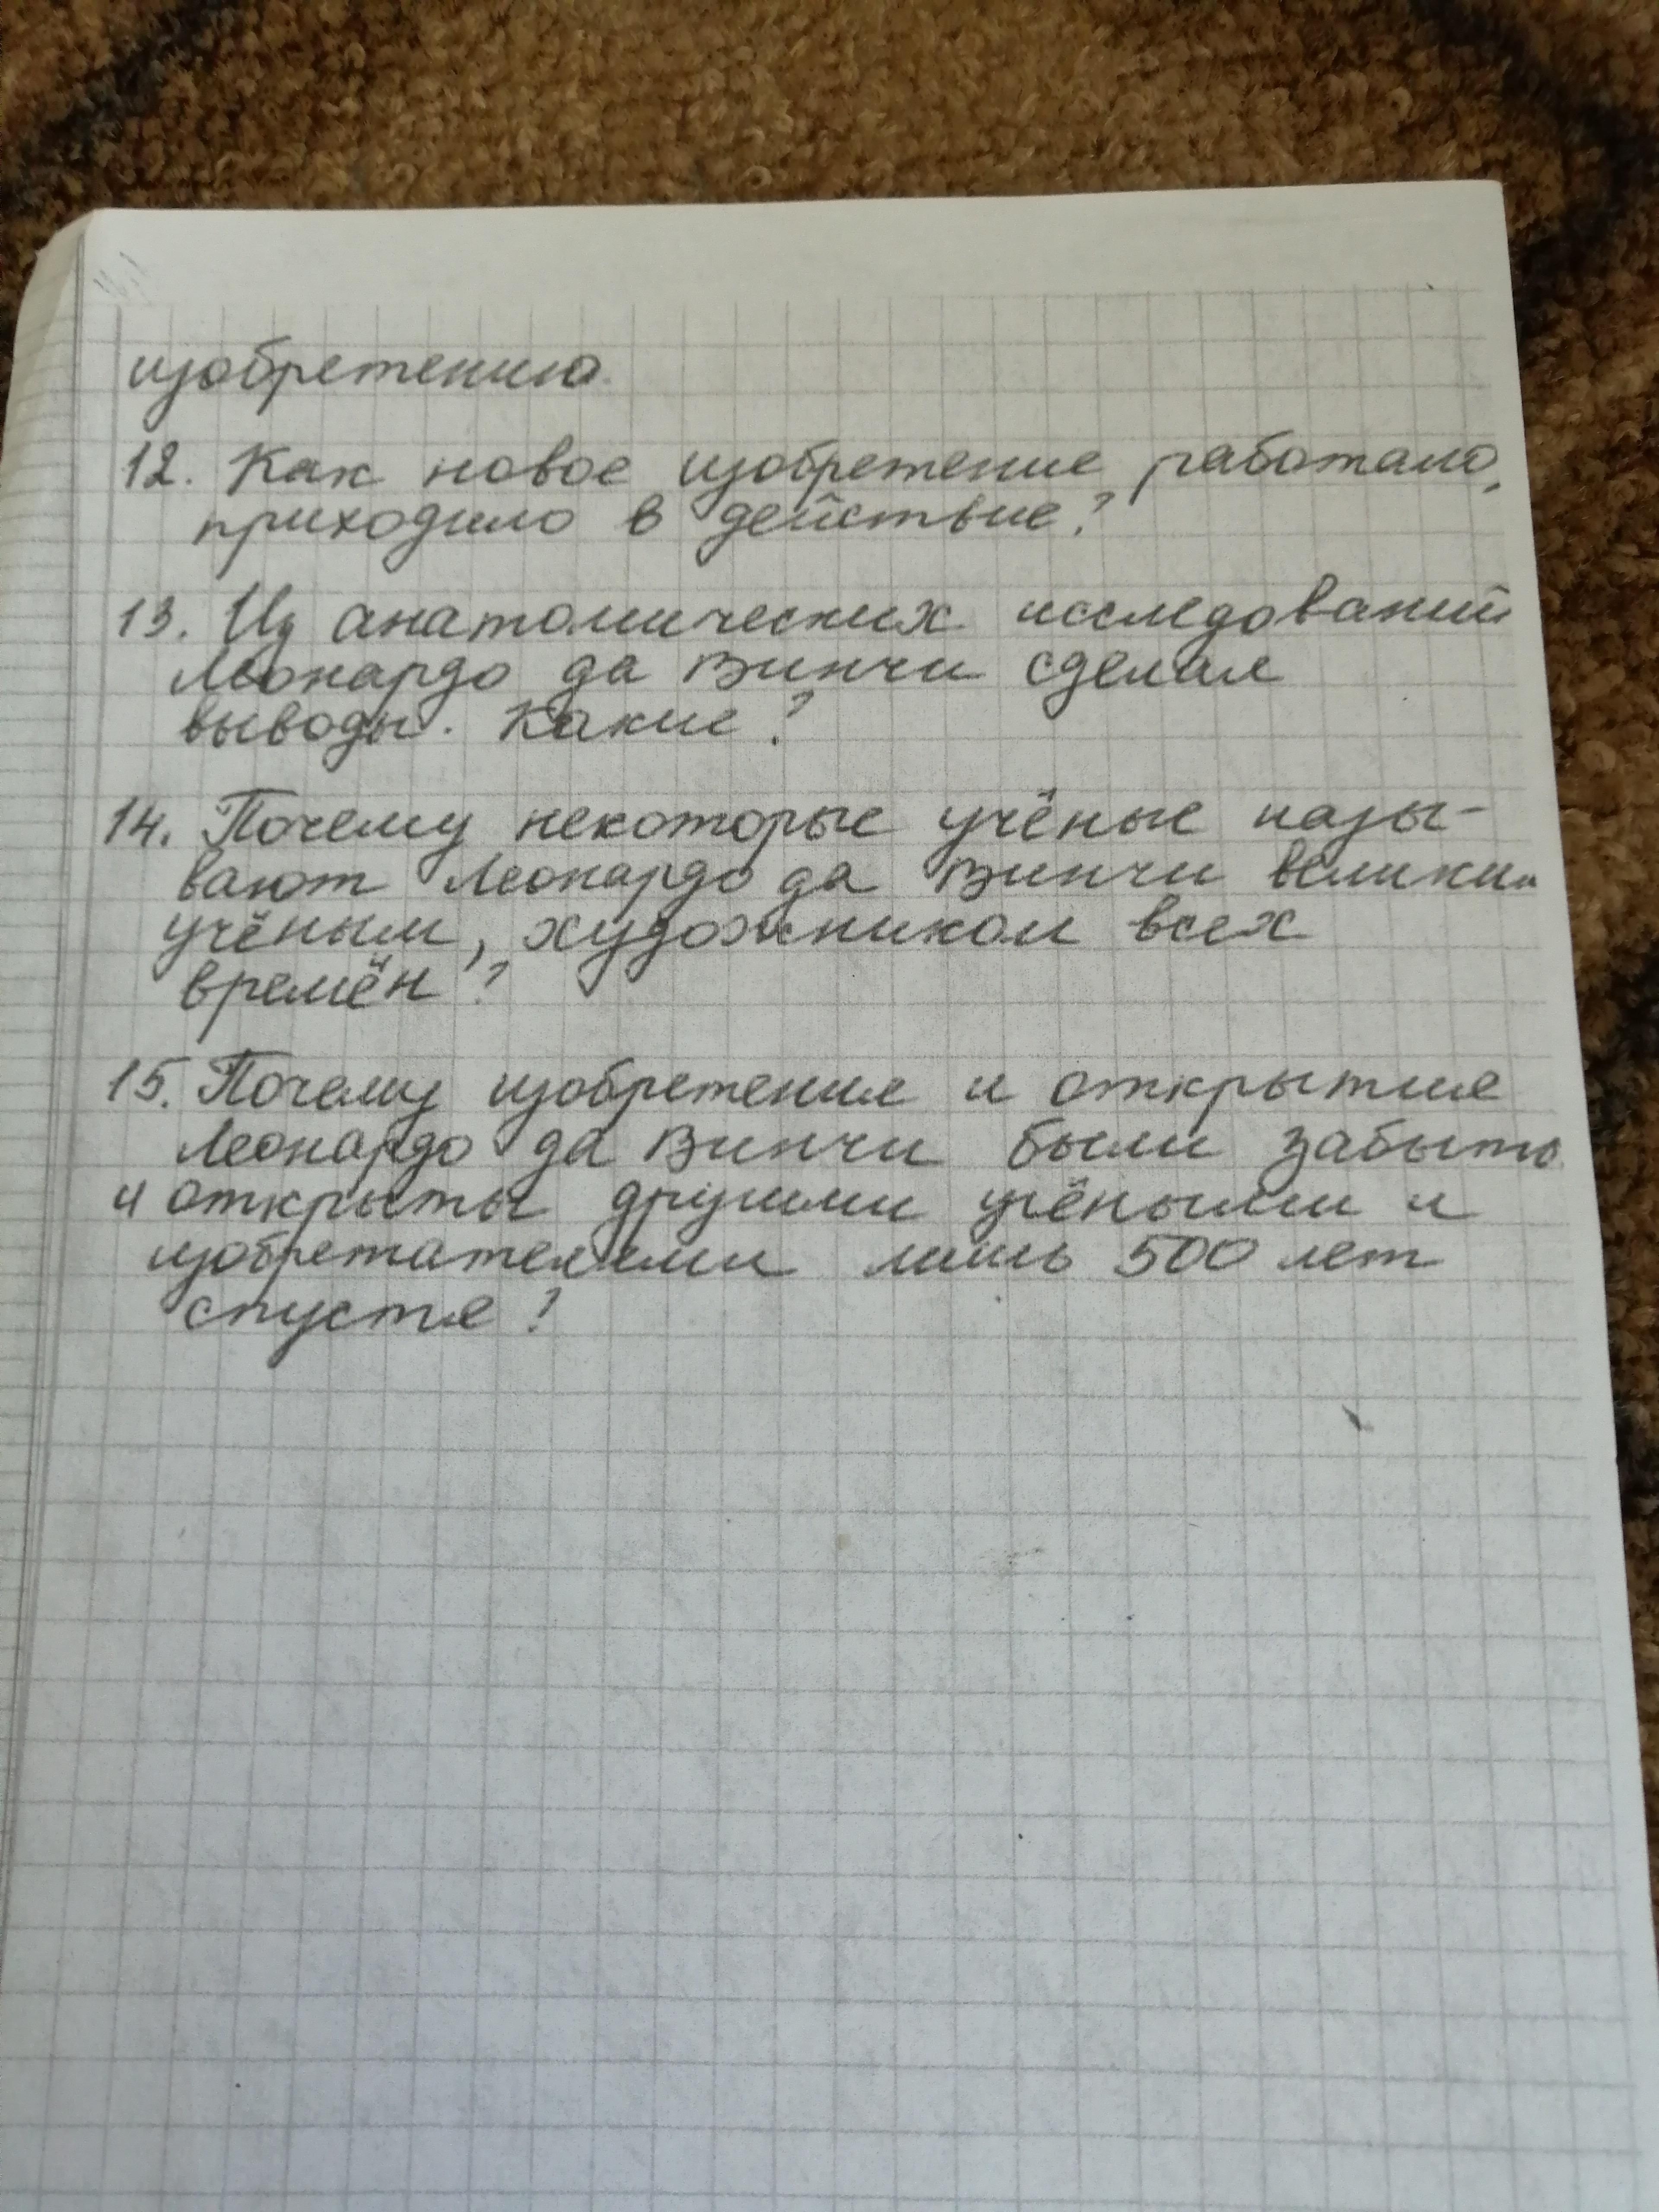 изобретению.
12. Как новое изобретение работало,
приходило в действие?
13. Из анатомических исследований
Леонардо да Винчи сделал
выводы. Какие?
14. Почему некоторые учёные назы-
вают Леонардо да Винчи великим
учёным, художником всех
времён?
15. Почему изобретения и открытия
Леонардо да Винчи были забыты
и открыты другими учёными и
изобретателями лишь 500 лет
спустя?